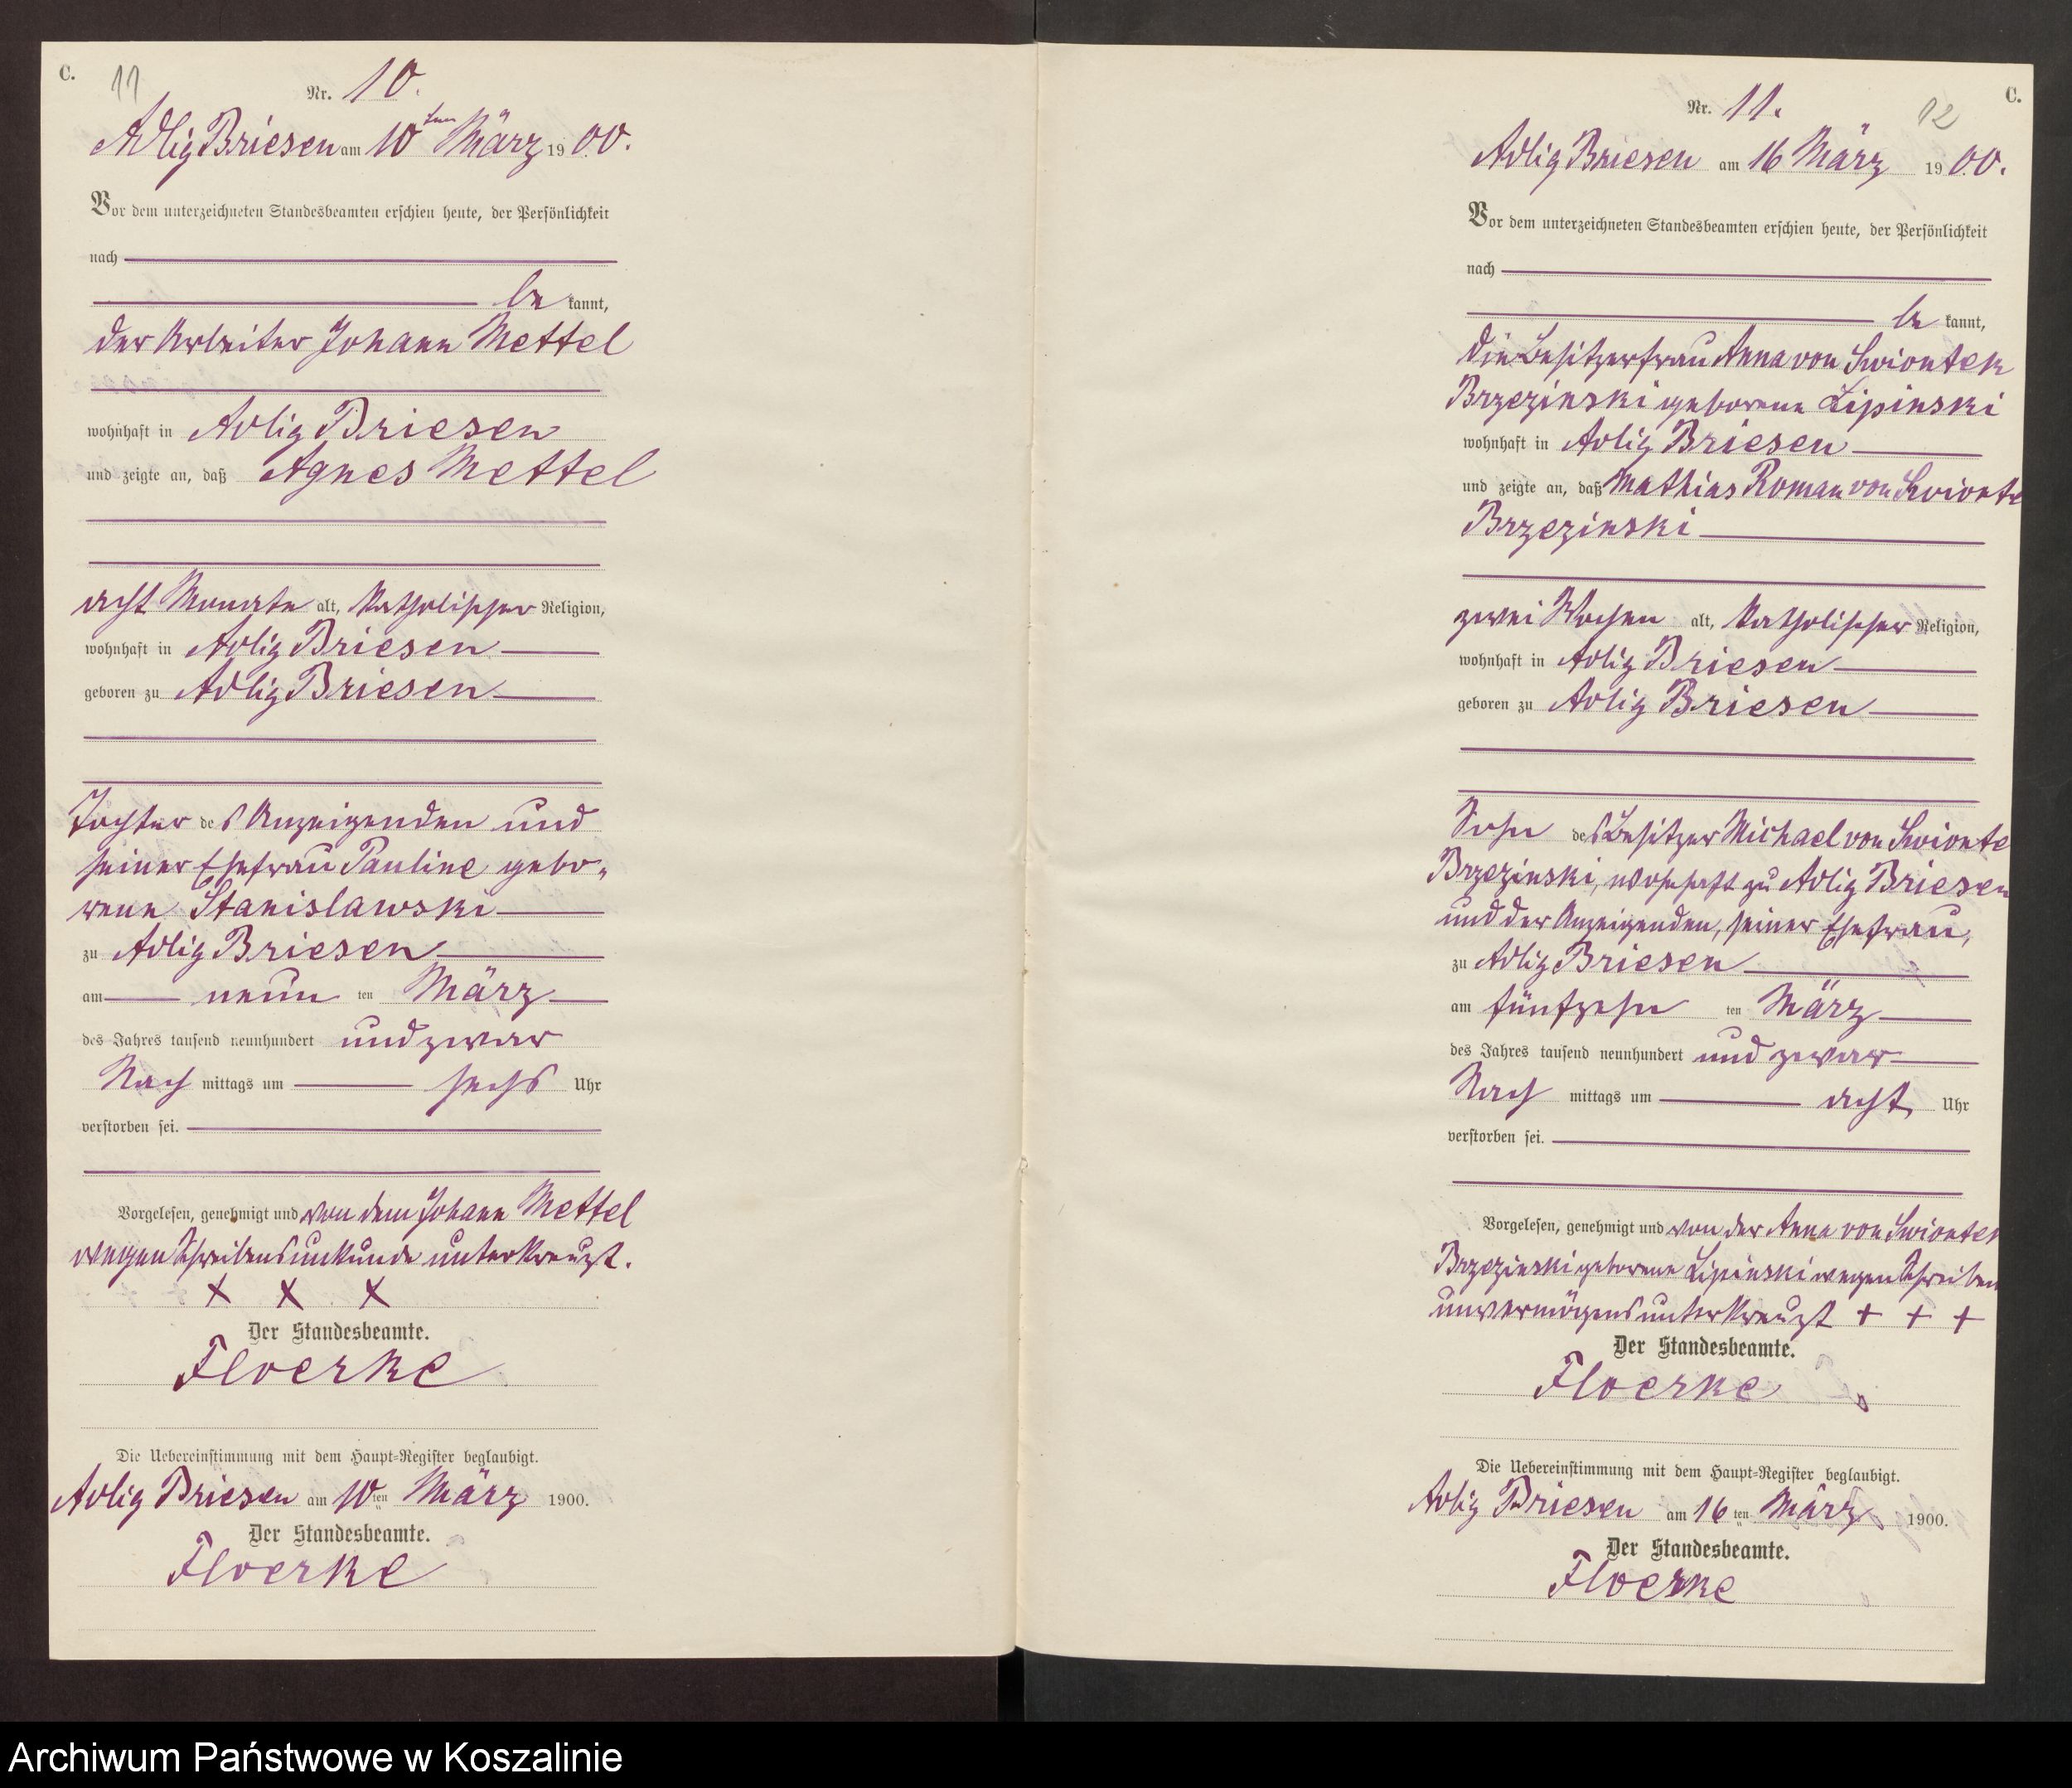 C.
11
Nr. 10.
Adlig Briesen am 10ten März 1900.
Vor dem unterzeichneten Standesbeamten erschien heute, der Persönlichkeit
nach
be kannt,
der Arbeiter Johann Mettel
wohnhaft in Adlig Briesen
und zeigte an, daß Agnes Mettel
acht Monate alt, katholischer Religion,
wohnhaft in Adlig Briesen
geboren zu Adlig Briesen
Tochter des Anzeigenden und
seiner Ehefrau Pauline gebo-
rene Stanislawski
zu Adlig Briesen
am neun ten März
des Jahres tausend neunhundert und zwar
Nach mittags um sechs Uhr
verstorben sei.
Vorgelesen, genehmigt und von dem Johann Mettel
wegen Schreibensunkunde unterkreuzt.
X X X
Der Standesbeamte.
Floerke
Die Uebereinstimmung mit dem Haupt-Register beglaubigt.
Adlig Briesen am 10ten März 1900.
Der Standesbeamte.
Floerke
C.
12
Nr. 11.
Adlig Briesen am 16 März 1900.
Vor dem unterzeichneten Standesbeamten erschien heute, der Persönlichkeit
nach
be kannt,
die Besitzerfrau Anna von Swiontek
Brzezinski geborene Lipinski
wohnhaft in Adlig Briesen
und zeigte an, daß Mathias Roman von Swionte
Brzezinski
zwei Wochen alt, katholischer Religion,
wohnhaft in Adlig Briesen
geboren zu Adlig Briesen
Sohn des Besitzer Michael von Swionte
Brzezinski, wohnhaft zu Adlig Briesen
und der Anzeigenden, seiner Ehefrau,
zu Adlig Briesen
am fünfzehn ten März
des Jahres tausend neunhundert und zwar
Nach mittags um acht Uhr
verstorben sei.
Vorgelesen, genehmigt und von der Anna von Swiontek
Brzezinski geborene Lipinski wegen Schreiben
unvermögens unterkreuzt + + +
Der Standesbeamte.
Floerke
Die Uebereinstimmung mit dem Haupt-Register beglaubigt.
Adlig Briesen am 16ten März 1900.
Der Standesbeamte.
Floerke
Archiwum Państwowe w Koszalinie